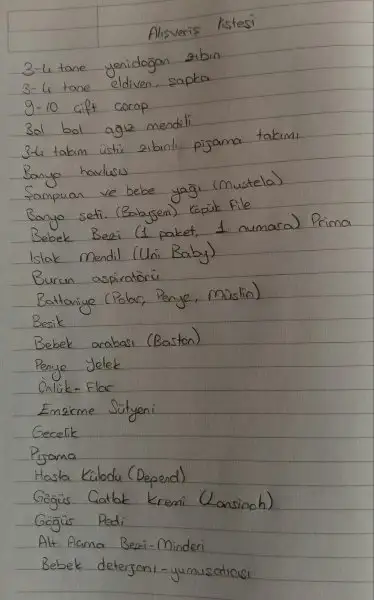 Alışveriş listesi
3-4 tane yenidoğan zıbın
3-4 tane eldiven, şapka
9-10 çift çorap
Bol bol ağız mendili
3-4 takım üstü zıbınlı pijama takımı
Banyo havlusu
Şampuan ve bebe yağı (Mustela)
Banyo seti. (Babyjem) köpük File
Bebek Bezi (1 paket, 1 numara) Prima
Islak Mendil (Uni Baby)
Burun aspiratörü
Battaniye (Polar, Penye, Müslin)
Beşik
Bebek arabası (Baston)
Penye Yelek
Önlük -
Emzirme Sütyeni
Gecelik
Pijama
Hasta Külodu (Depend)
Göğüs Çatlak Kremi (Lansinoh)
Göğüs Pedi
Alt Açma Bezi-Minderi
Bebek deterjanı-yumuşatıcısı